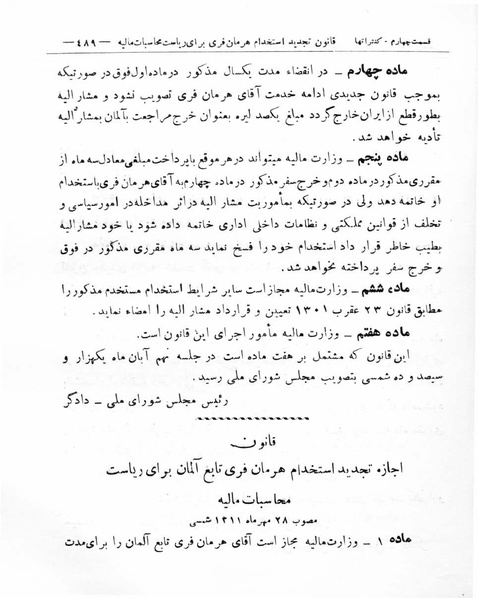 قسمت چهارم - کنتراتها    قانون تجدید استخدام هرمان فری برای ریاست محاسبات مالیه    — ٤٨٩ —
ماده چهارم ــ در انقضاء مدت یکسال مذکور در ماده اول فوق در صورتیکه
بموجب قانون جدیدی ادامه خدمت آقای هرمان فری تصویب نشود و مشار الیه
بطور قطع از ایران خارج گردد مبلغ یکصد لیره بعنوان خرج مراجعت بآلمان بمشار الیه
تأدیه خواهد شد.
ماده پنجم ــ وزارت مالیه میتواند در هر موقع با پرداخت مبلغی معادل سه ماه از
مقرری مذکور در ماده دوم و خرج سفر مذکور در ماده چهارم به آقای هرمان فری باستخدام
او خاتمه دهد ولی در صورتیکه بمأموریت مشار الیه در اثر مداخله در امور سیاسی و
تخلف از قوانین مملکتی و نظامات داخلی اداری خاتمه داده شود یا خود مشار الیه
بطیب خاطر قرار داد استخدام خود را فسخ نماید سه ماه مقرری مذکور در فوق
و خرج سفر پرداخته نخواهد شد.
ماده ششم ــ وزارت مالیه مجاز است سایر شرایط استخدام مستخدم مذکور را
مطابق قانون ٢٣ عقرب ١٣٠١ تعیین و قرارداد مشار الیه را امضاء نماید.
ماده هفتم ــ وزارت مالیه مأمور اجرای این قانون است.
این قانون که مشتمل بر هفت ماده است در جلسه نهم آبان ماه یکهزار و
سیصد و ده شمسی بتصویب مجلس شورای ملی رسید.
رئیس مجلس شورای ملی ــ دادگر
قانون
اجازه تجدید استخدام هرمان فری تابع آلمان برای ریاست
محاسبات مالیه
مصوب ٢٨ مهر ماه ١٣١١ شمسی
ماده ١ ــ وزارت مالیه مجاز است آقای هرمان فری تابع آلمان را برای مدت